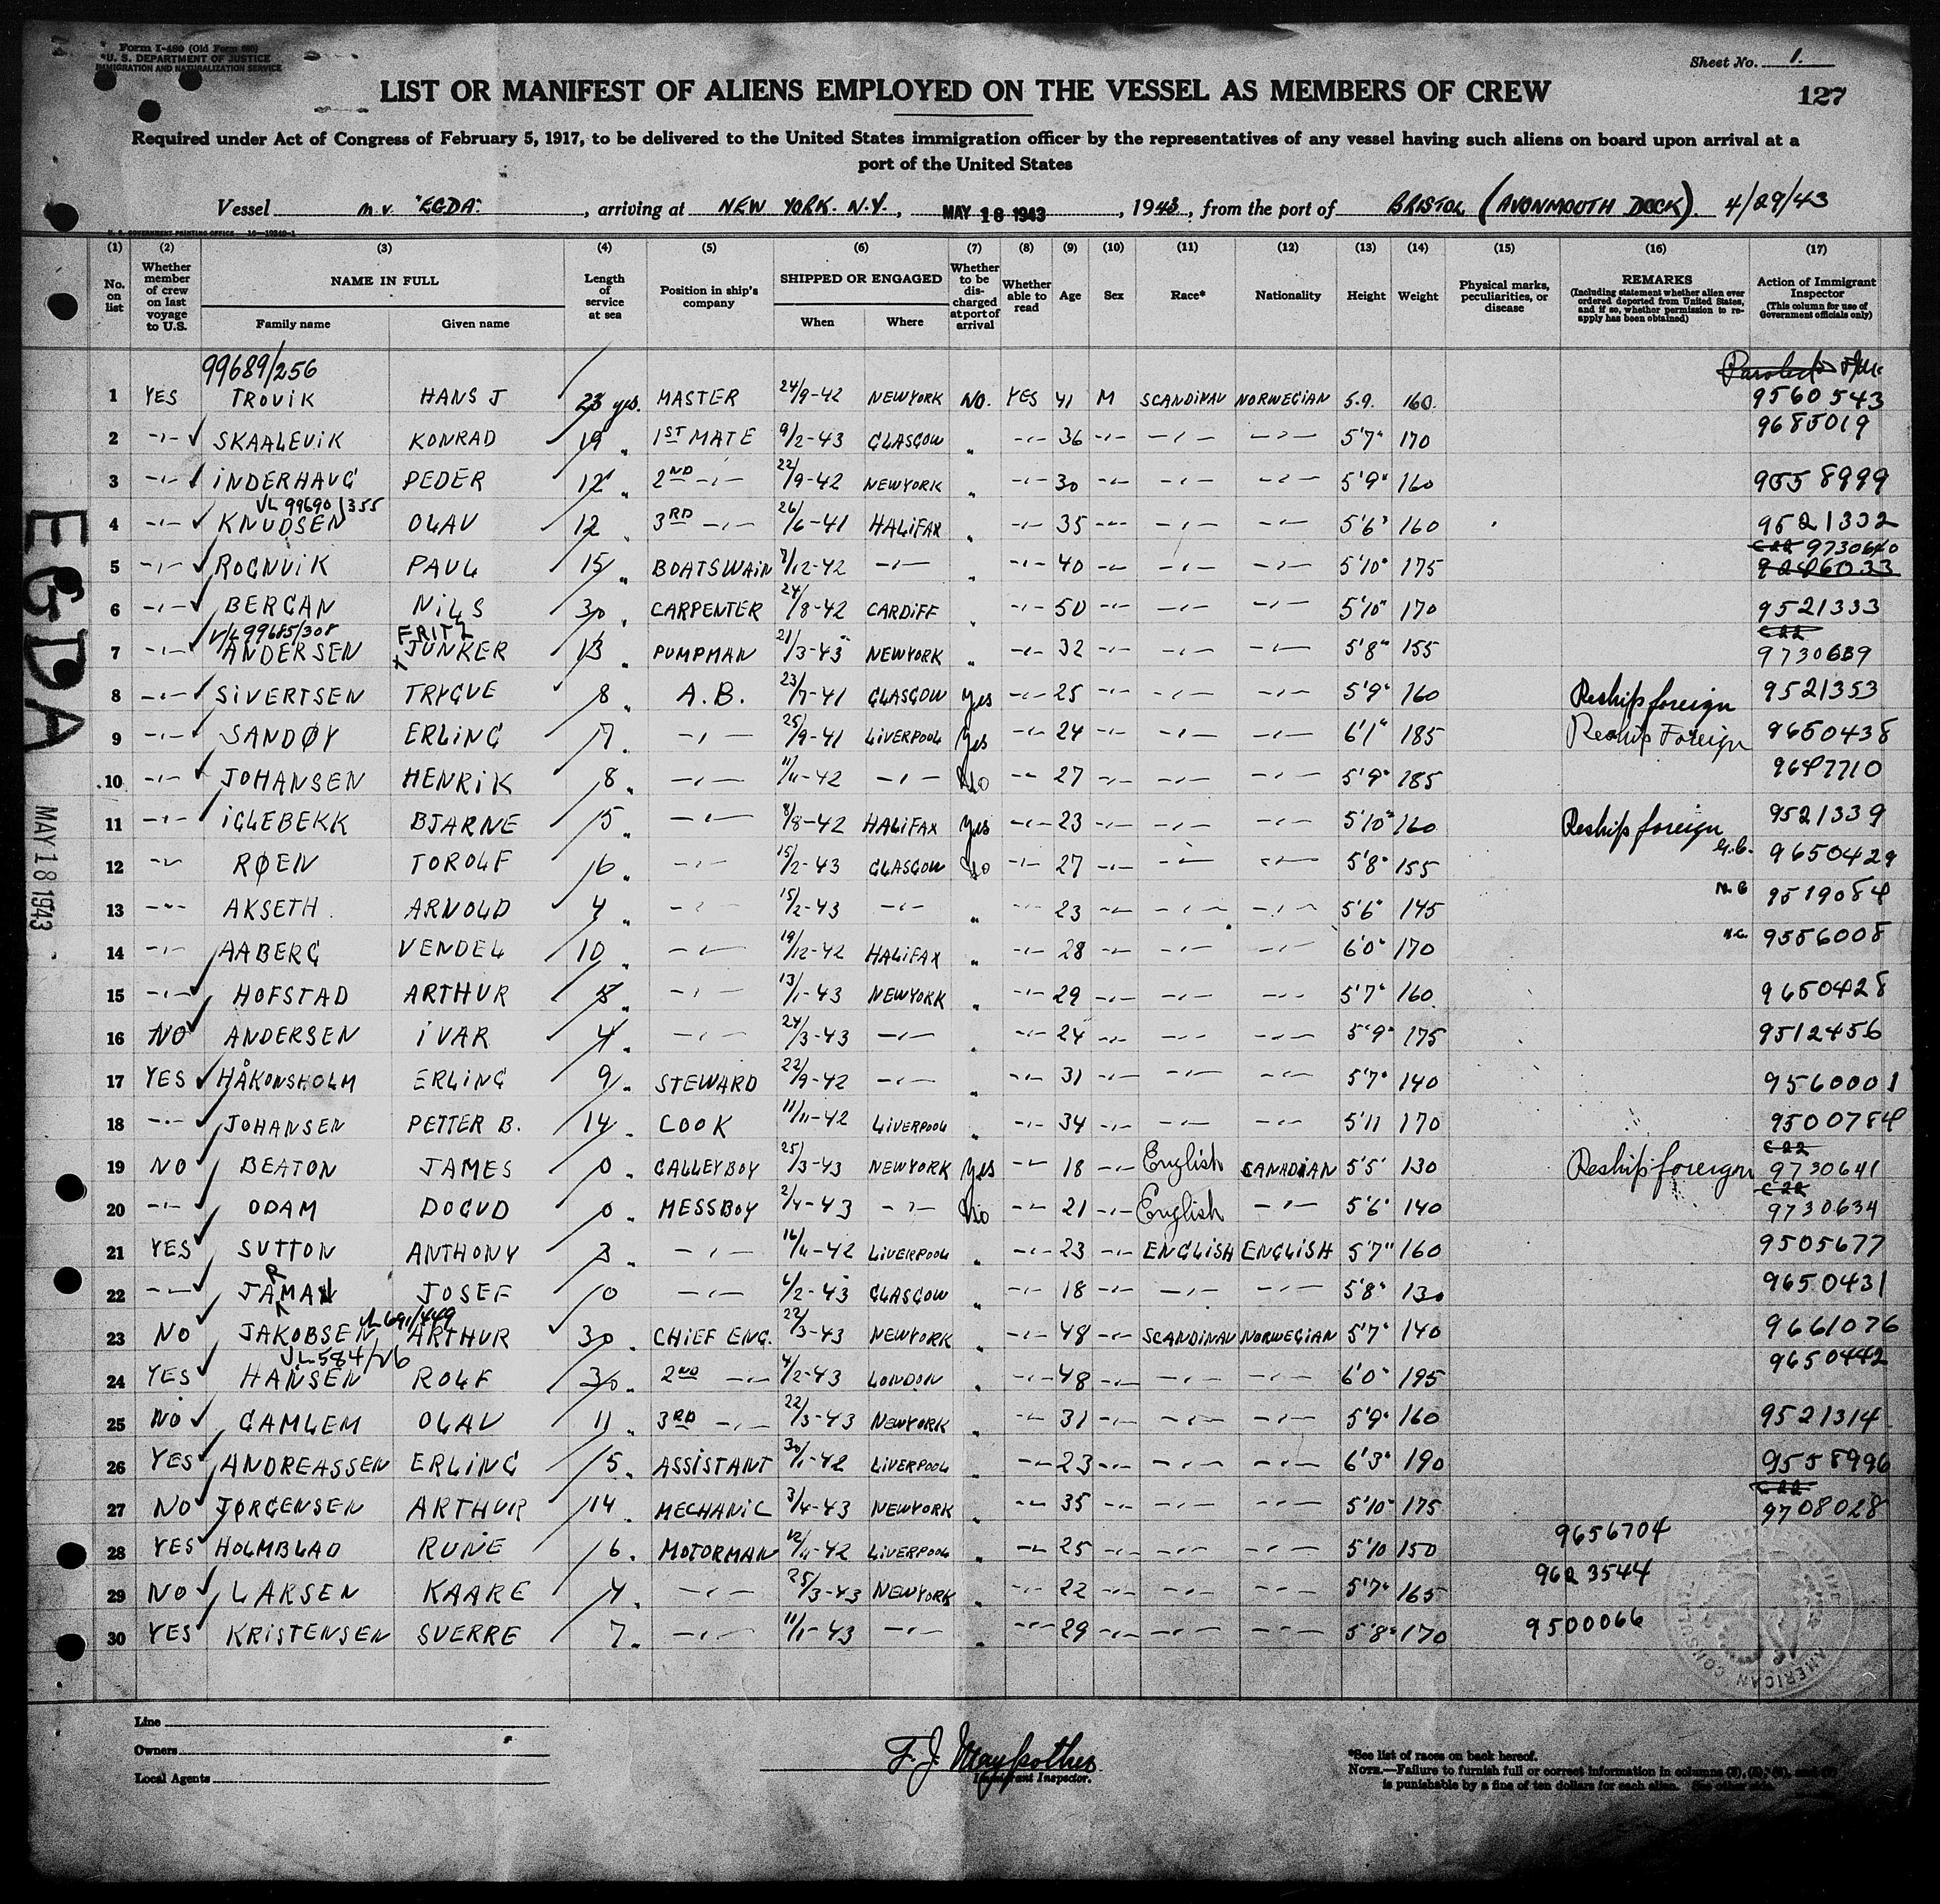 Form I-480 (Old Form 680)
U. S. DEPARTMENT OF JUSTICE
IMMIGRATION AND NATURALIZATION SERVICE
Sheet No. 1.
LIST OR MANIFEST OF ALIENS EMPLOYED ON THE VESSEL AS MEMBERS OF CREW
127
Required under Act of Congress of February 5, 1917, to be delivered to the United States immigration officer by the representatives of any vessel having such aliens on board upon arrival at a
port of the United States
Vessel m.v. "EGDA", arriving at NEW YORK. N.Y., MAY 18 1943, 1943, from the port of BRISTOL (AVONMOUTH DOCK). 4/29/43
(1) (2) (3) (4) (5) (6) (7) (8) (9) (10) (11) (12) (13) (14) (15) (16) (17)
No. on list
Whether member of crew on last voyage to U.S.
NAME IN FULL
Family name
Given name
Length of service at sea
Position in ship's company
SHIPPED OR ENGAGED
When
Where
Whether to be discharged at port of arrival
Whether able to read
Age
Sex
Race*
Nationality
Height
Weight
Physical marks, peculiarities, or disease
REMARKS
(Including statement whether alien ever ordered deported from United States, and if so, whether permission to re-apply has been obtained)
Action of Immigrant Inspector
(This column for use of Government officials only)
99689/256
1 YES TROVIK HANS J 23 yrs. MASTER 24/9-42 NEWYORK NO. YES 41 M SCANDINAV NORWEGIAN 5.9. 160. 9560543
2 -"- SKAALEVIK KONRAD 19 " 1ST MATE 9/2-43 GLASGOW " -"- 36 -"- -"- -"- 5'7" 170 9685019
3 -"- INDERHAUG PEDER 12 " 2ND -"- 22/9-42 NEWYORK " -"- 30 -"- -"- -"- 5'9" 160 9558999
VL 99690/355
4 -"- KNUDSEN OLAV 12 " 3RD -"- 26/6-41 HALIFAX " -"- 35 -"- -"- -"- 5'6" 160 9521332
5 -"- ROGNVIK PAUL 15 " BOATSWAIN 7/12-42 -"- " -"- 40 -"- -"- -"- 5'10" 175 9730640
6 -"- BERGAN NILS 30 " CARPENTER 24/8-42 CARDIFF " -"- 50 -"- -"- -"- 5'10" 170 9521333
V/L 99685/308 FRITZ
7 -"- ANDERSEN JUNKER 13 " PUMPMAN 21/3-43 NEWYORK " -"- 32 -"- -"- -"- 5'8" 155 9730639
8 -"- SIVERTSEN TRYGVE 8 " A.B. 23/7-41 GLASGOW Yes -"- 25 -"- -"- -"- 5'9" 160 Reship foreign 9521353
9 -"- SANDØY ERLING 7 " -"- 25/9-41 LIVERPOOL Yes -"- 24 -"- -"- -"- 6'1" 185 Reship Foreign 9650438
10 -"- JOHANSEN HENRIK 8 " -"- 11/11-42 -"- No -"- 27 -"- -"- -"- 5'9" 185 9647710
11 -"- IGLEBEKK BJARNE 5 " -"- 8/8-42 HALIFAX Yes -"- 23 -"- -"- -"- 5'10" 160 Reship foreign 9521339
12 -"- RØEN TOROLF 10 " -"- 15/2-43 GLASGOW No -"- 27 -"- -"- -"- 5'8" 155 9650429
13 -"- AKSETH ARNOLD 4 " -"- 15/2-43 -"- " -"- 23 -"- -"- -"- 5'6" 145 9519084
14 -"- AABERG VENDEL 10 " -"- 19/12-42 HALIFAX " -"- 28 -"- -"- -"- 6'0" 170 9556008
15 -"- HOFSTAD ARTHUR 5 " -"- 13/1-43 NEWYORK " -"- 29 -"- -"- -"- 5'7" 160 9650428
16 NO ANDERSEN IVAR 4 " -"- 24/3-43 -"- " -"- 24 -"- -"- -"- 5'9" 175 9512456
17 YES HÅKONSHOLM ERLING 9 " STEWARD 22/9-42 -"- " -"- 31 -"- -"- -"- 5'7" 140 9560001
18 -"- JOHANSEN PETTER B. 14 " COOK 11/11-42 LIVERPOOL " -"- 34 -"- -"- -"- 5'11 170 9500784
19 NO BEATON JAMES 0 " GALLEYBOY 25/3-43 NEWYORK Yes -"- 18 -"- English CANADIAN 5'5" 130 Reship foreign 9730641
20 -"- ODAM DOGUD 0 " MESSBOY 2/4-43 -"- No -"- 21 -"- English -"- 5'6" 140 9730634
21 YES SUTTON ANTHONY 3 " -"- 16/11-42 LIVERPOOL " -"- 23 -"- ENGLISH ENGLISH 5'7" 160 9505677
22 -"- JARMAN JOSEF 0 " -"- 6/2-43 GLASGOW " -"- 18 -"- -"- -"- 5'8" 130 9650431
VL 691/449
23 NO JAKOBSEN ARTHUR 30 " CHIEF ENG. 22/3-43 NEWYORK " -"- 48 -"- SCANDINAV NORWEGIAN 5'7" 140 9661076
24 YES HANSEN ROLF 30 " 2ND -"- 4/2-43 LONDON " -"- 48 -"- -"- -"- 6'0" 195 9650442
25 NO GAMLEM OLAV 11 " 3RD -"- 22/3-43 NEWYORK " -"- 31 -"- -"- -"- 5'9" 160 9521314
26 YES ANDREASSEN ERLING 5 " ASSISTANT 30/1-42 LIVERPOOL " -"- 23 -"- -"- -"- 6'3" 190 9558996
27 NO JØRGENSEN ARTHUR 14 " MECHANIC 3/4-43 NEWYORK " -"- 35 -"- -"- -"- 5'10" 175 9708028
28 YES HOLMBLAD RUNE 6 " MOTORMAN 12/11-42 LIVERPOOL " -"- 25 -"- -"- -"- 5'10 150 9656704
29 NO LARSEN KAARE 4 " -"- 25/3-43 NEWYORK " -"- 22 -"- -"- -"- 5'7" 165 9623544
30 YES KRISTENSEN SVERRE 7 " -"- 11/1-43 -"- " -"- 29 -"- -"- -"- 5'8" 170 9500066
EGDA
MAY 18 1943
AMERICAN CONSUL
Line
Owners
Local Agents
Immigrant Inspector.
*See list of races on back hereof.
NOTE.—Failure to furnish full or correct information in columns
is punishable by a fine of ten dollars for each alien. See other side.